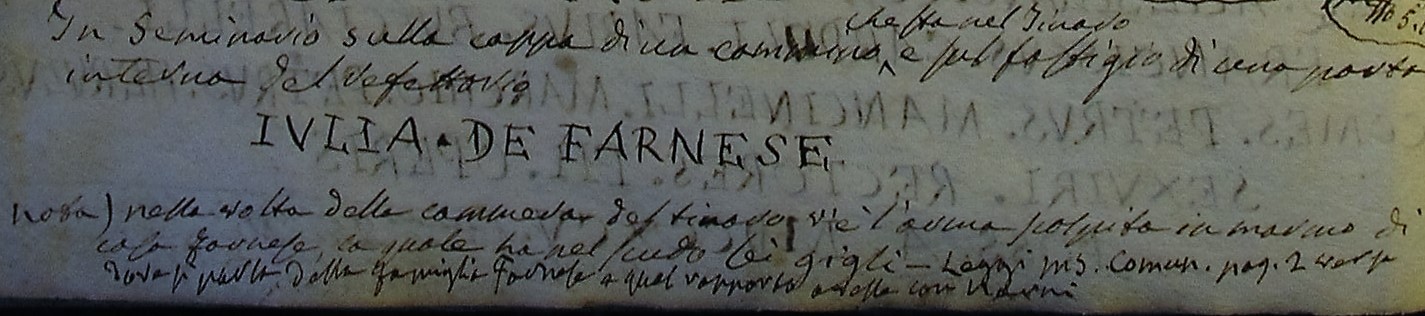 che sta nel Tinaro
In Seminario sulla cappa di un cammino, e sul fastigio di una porta
interna del refettorio
IVLIA · DE FARNESE
Nota) nella volta della camera del tinaro v'è l'arma scolpita in marmo di
casa Farnese, la quale ha nel scudo sei gigli – Leggi ms. Comun. pag. 2 verso
dove si parla della famiglia Farnese e qual rapporto avesse con Narni